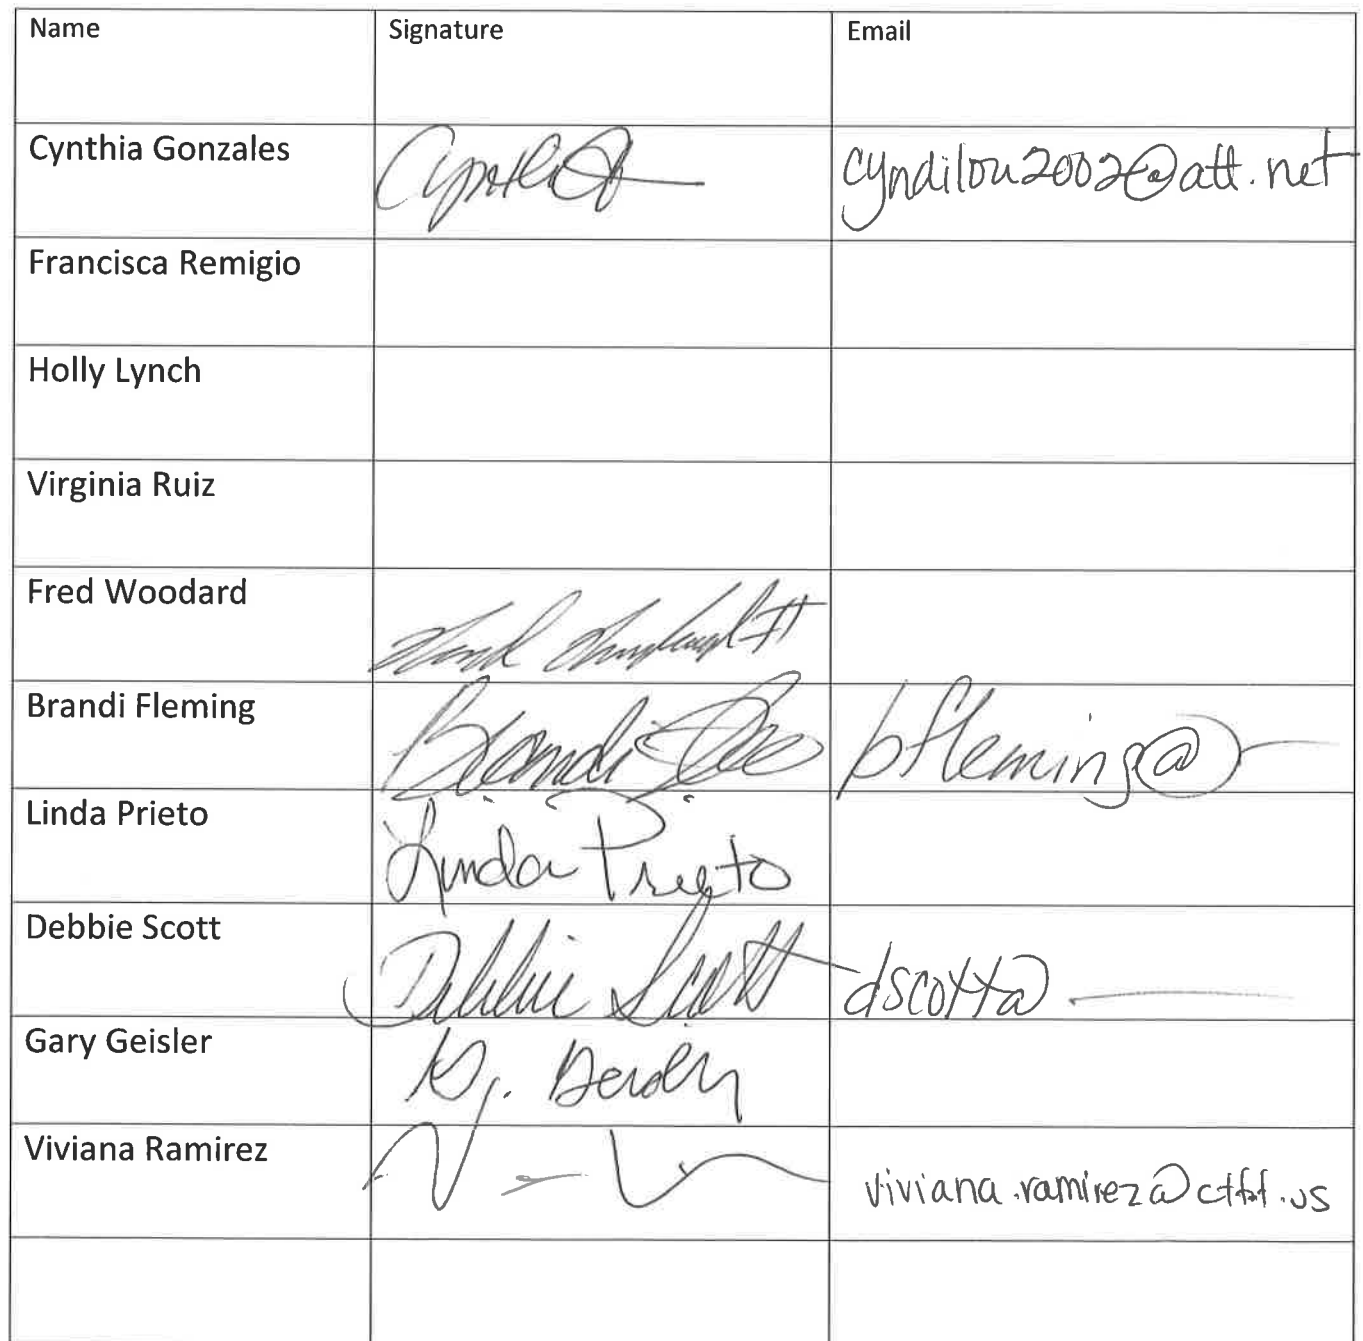 Name Signature Email
Cynthia Gonzales cyndilou2002@att.net
Francisca Remigio
Holly Lynch
Virginia Ruiz
Fred Woodard
Brandi Fleming Brandi bfleming@
Linda Prieto Linda Prieto
Debbie Scott Debbie Scott dscott@
Gary Geisler G.
Viviana Ramirez